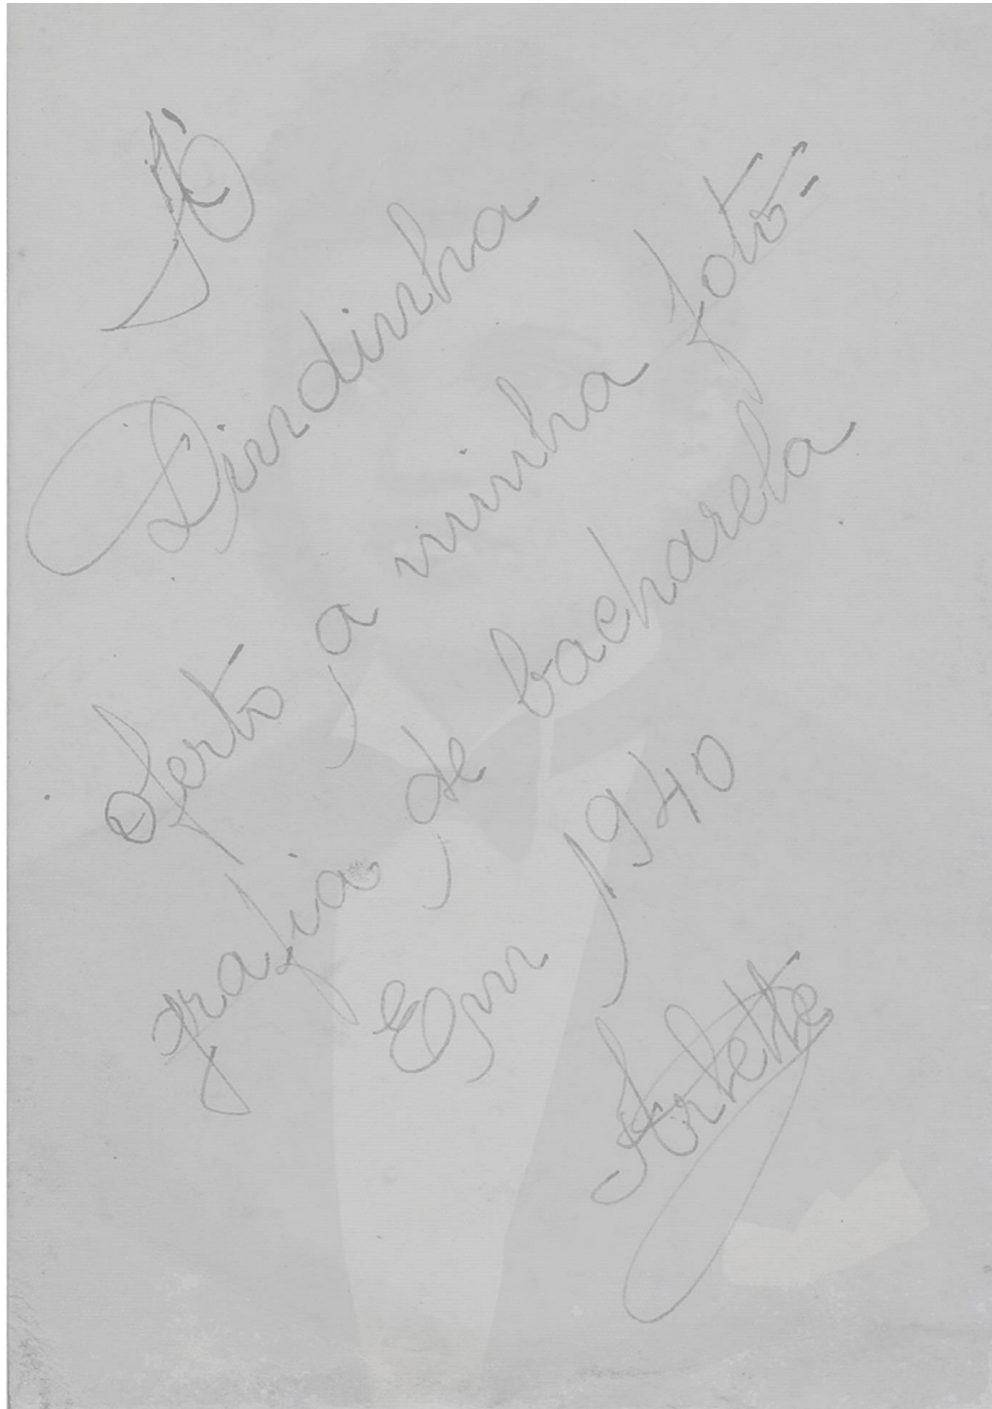 À
Dindinha
oferto a minha foto-
grafia de bacharela
Em 1940
Arlette